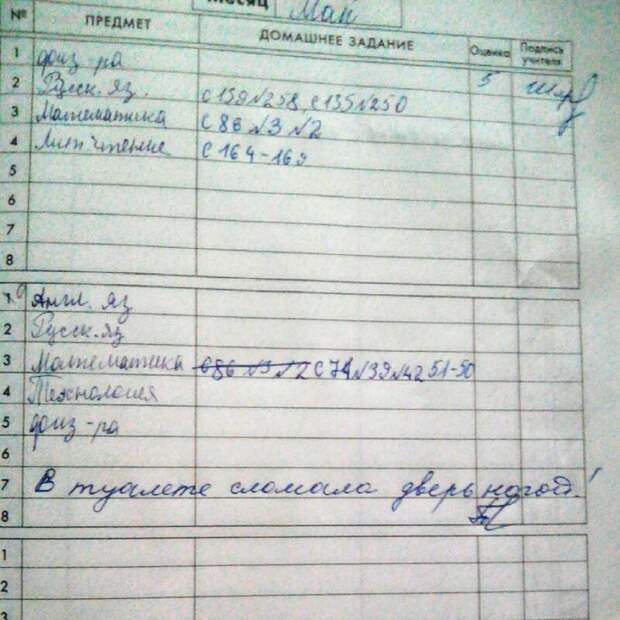 Месяц Май
№ ПРЕДМЕТ ДОМАШНЕЕ ЗАДАНИЕ Оценка Подпись учителя
1 физ-ра
2 Русск. яз. с 159 №258, с 135 №250 5
3 Математика с 86 №3 №2
4 Лит чтение с 164-169
5
6
7
8
1 Англ. яз
2 Русск. яз
3 Математика с86 №3 №2 с 74 №39 №42 51-50
4 Технология
5 физ-ра
6
7 В туалете сломала дверь ногой!
8
1
2
3